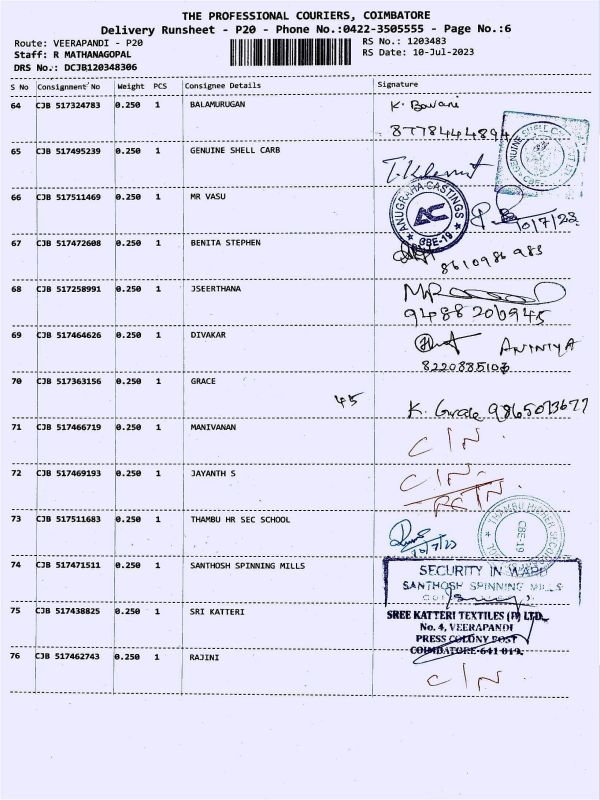 THE PROFESSIONAL COURIERS, COIMBATORE
Delivery Runsheet - P20 - Phone No.:0422-3505555 - Page No.:6
Route: VEERAPANDI - P20
RS No.: 1203483
Staff: R MATHANAGOPAL
RS Date: 10-Jul-2023
DRS No.: DCJB120348306
S No Consignment No Weight PCS Consignee Details Signature
64 CJB 517324783 0.250 1 BALAMURUGAN K. Bavani
8778444894
65 CJB 517495239 0.250 1 GENUINE SHELL CARB
GENUINE SHELL
66 CJB 517511469 0.250 1 MR VASU
ANUGRAHA CASTINGS
AC
CBE-19
10/7/23
67 CJB 517472608 0.250 1 BENITA STEPHEN
8610986983
68 CJB 517258991 0.250 1 JSEERTHANA
9488206945
69 CJB 517464626 0.250 1 DIVAKAR ANINIYA
8220885103
70 CJB 517363156 0.250 1 GRACE
45
K. Grace 9865013677
71 CJB 517466719 0.250 1 MANIVANAN C/N
72 CJB 517469193 0.250 1 JAYANTH S C/N
73 CJB 517511683 0.250 1 THAMBU HR SEC SCHOOL
10/7/23
THAMBU HIGHER SECONDARY
CBE-19
74 CJB 517471511 0.250 1 SANTHOSH SPINNING MILLS
SECURITY IN WARD
SANTHOSH SPINNING MILLS
75 CJB 517438825 0.250 1 SRI KATTERI
SREE KATTERI TEXTILES (P) LTD.,
No. 4, VEERAPANDI
PRESS COLONY POST
COIMBATORE-641 019.
76 CJB 517462743 0.250 1 RAJINI C/N